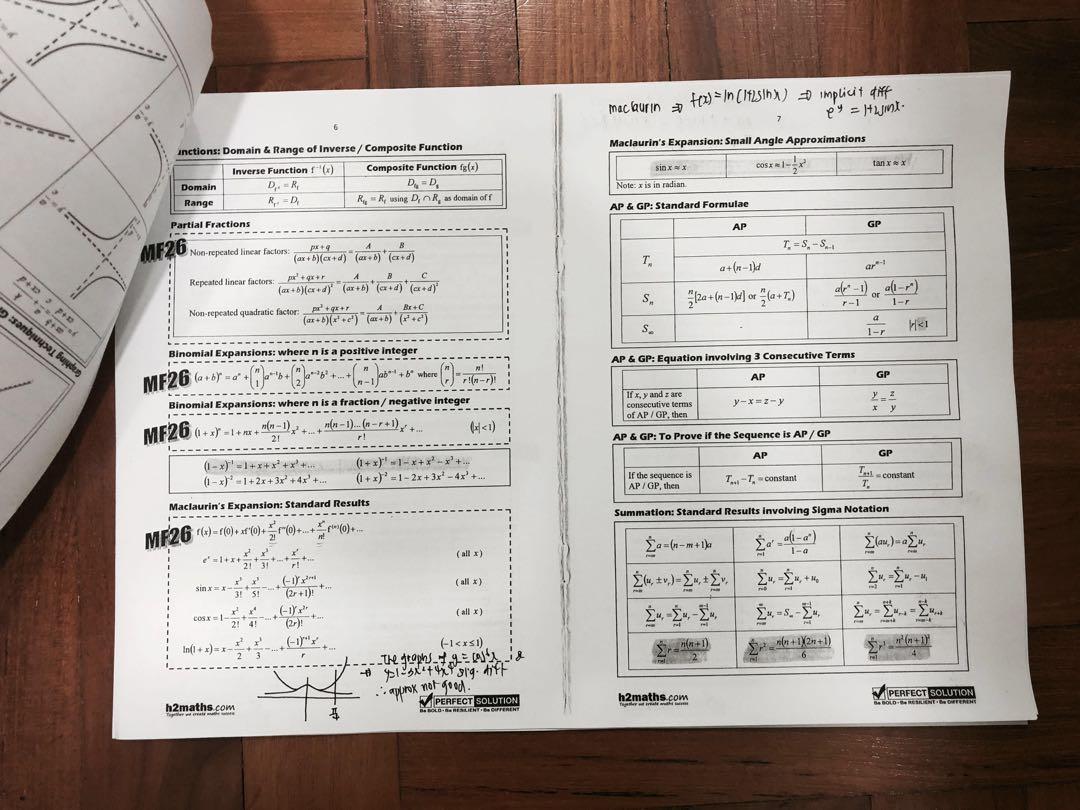 6
nctions: Domain & Range of Inverse / Composite Function
Inverse Function f⁻¹(x) Composite Function fg(x)
Domain D_f⁻¹ = R_f D_fg = D_g
Range R_f⁻¹ = D_f R_fg = R_f using D_f ∩ R_g as domain of f
Partial Fractions
MF26
Non-repeated linear factors: (px+q)/((ax+b)(cx+d)) = A/(ax+b) + B/(cx+d)
Repeated linear factors: (px²+qx+r)/((ax+b)(cx+d)²) = A/(ax+b) + B/(cx+d) + C/(cx+d)²
Non-repeated quadratic factor: (px²+qx+r)/((ax+b)(x²+c²)) = A/(ax+b) + (Bx+C)/(x²+c²)
Binomial Expansions: where n is a positive integer
MF26 (a+b)ⁿ = aⁿ + (n 1)aⁿ⁻¹b + (n 2)aⁿ⁻²b² + ... + (n n−1)abⁿ⁻¹ + bⁿ where (n r) = n!/(r!(n−r)!)
Binomial Expansions: where n is a fraction / negative integer
MF26 (1+x)ⁿ = 1 + nx + n(n−1)/2! x² + ... + n(n−1)...(n−r+1)/r! xʳ + ... (|x|<1)
(1−x)⁻¹ = 1+x+x²+x³+... (1+x)⁻¹ = 1−x+x²−x³+...
(1−x)⁻² = 1+2x+3x²+4x³+... (1+x)⁻² = 1−2x+3x²−4x³+...
Maclaurin's Expansion: Standard Results
MF26 f(x) = f(0) + xf'(0) + x²/2! f''(0) + ... + xⁿ/n! f⁽ⁿ⁾(0) + ...
eˣ = 1 + x + x²/2! + x³/3! + ... + xʳ/r! + ... (all x)
sin x = x − x³/3! + x⁵/5! − ... + (−1)ʳx²ʳ⁺¹/(2r+1)! + ... (all x)
cos x = 1 − x²/2! + x⁴/4! − ... + (−1)ʳx²ʳ/(2r)! + ... (all x)
ln(1+x) = x − x²/2 + x³/3 − ... + (−1)ʳ⁺¹xʳ/r + ... (−1<x≤1)
The graphs of y =
∴ approx not good.
h2maths.com
Together we create maths success
PERFECT SOLUTION
Be BOLD • Be RESILIENT • Be DIFFERENT
maclaurin ⇒ f(x) = ln(1+2sinx) ⇒ implicit diff
e^y = 1+2sinx.
7
Maclaurin's Expansion: Small Angle Approximations
sin x ≈ x cos x ≈ 1 − 1/2 x² tan x ≈ x
Note: x is in radian.
AP & GP: Standard Formulae
AP GP
T_n T_n = S_n − S_n−1
a+(n−1)d arⁿ⁻¹
S_n n/2[2a+(n−1)d] or n/2(a+T_n) a(rⁿ−1)/(r−1) or a(1−rⁿ)/(1−r)
S_∞ - a/(1−r) |r|<1
AP & GP: Equation involving 3 Consecutive Terms
AP GP
If x, y and z are
consecutive terms y − x = z − y y/x = z/y
of AP / GP, then
AP & GP: To Prove if the Sequence is AP / GP
AP GP
If the sequence is
AP / GP, then T_n+1 − T_n = constant T_n+1/T_n = constant
Summation: Standard Results involving Sigma Notation
∑(r=m to n) a = (n−m+1)a ∑(r=1 to n) aʳ = a(1−aⁿ)/(1−a) ∑(r=m to n) (au_r) = a∑(r=m to n) u_r
∑(r=m to n) (u_r ± v_r) = ∑(r=m to n) u_r ± ∑(r=m to n) v_r ∑(r=0 to n) u_r = ∑(r=1 to n) u_r + u_0 ∑(r=2 to n) u_r = ∑(r=1 to n) u_r − u_1
∑(r=m to n) u_r = ∑(r=1 to n) u_r − ∑(r=1 to m−1) u_r
∑(r=1 to n) r = n(n+1)/2 ∑(r=1 to n) r² = n(n+1)(2n+1)/6
h2maths.com
Together we create maths success
PERFECT SOLUTION
Be BOLD • Be RESILIENT • Be DIFFERENT